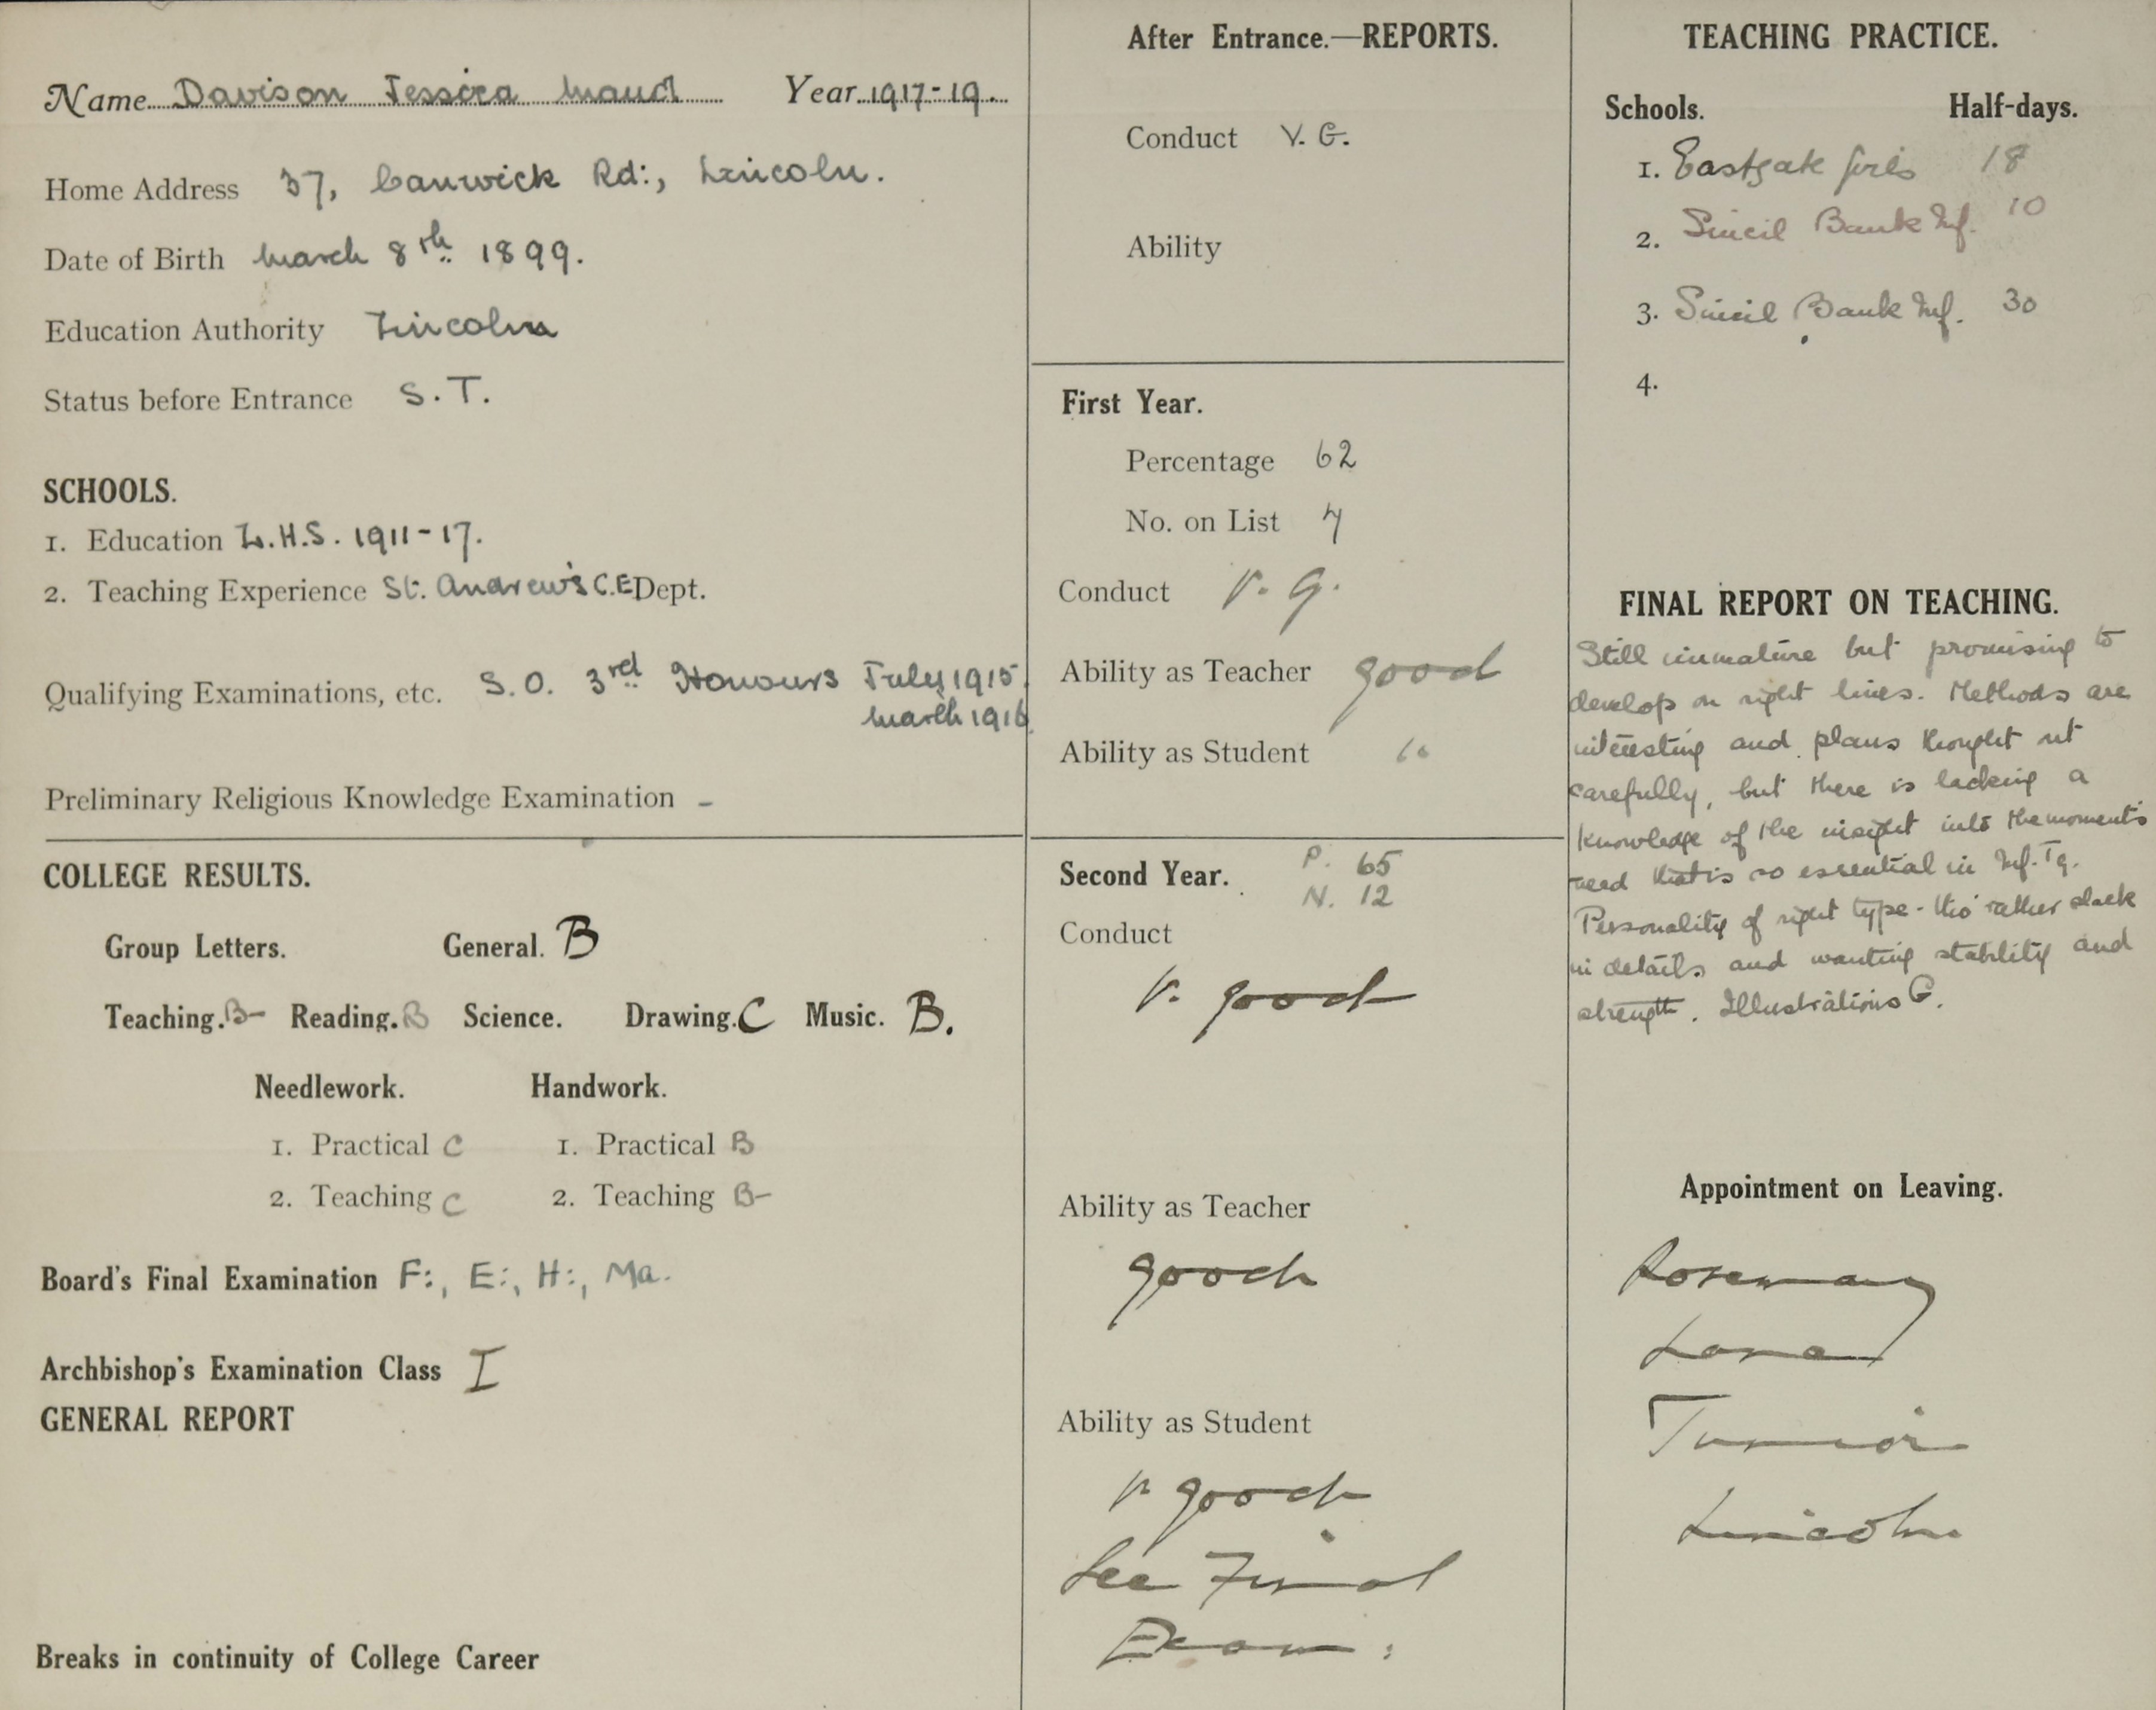 Name Davison Jessica Maud Year 1917-19.
Home Address 37, Canwick Rd:, Lincoln.
Date of Birth March 8th 1899.
Education Authority Lincoln
Status before Entrance S.T.
SCHOOLS.
1. Education L.H.S. 1911-17.
2. Teaching Experience St. Andrew's C.E Dept.
Qualifying Examinations, etc. S.O. 3rd Honours July 1915.
March 1916
Preliminary Religious Knowledge Examination -
COLLEGE RESULTS.
Group Letters. General. B
Teaching. B- Reading. B Science. Drawing. C Music. B.
Needlework. Handwork.
1. Practical C 1. Practical B
2. Teaching C 2. Teaching B-
Board's Final Examination F:, E:, H:, Ma.
Archbishop's Examination Class I
GENERAL REPORT
Breaks in continuity of College Career
After Entrance.—REPORTS.
Conduct V. G.
Ability
First Year.
Percentage 62
No. on List 7
Conduct V. G.
Ability as Teacher good
Ability as Student
Second Year. P. 65
N. 12
Conduct
V. good
Ability as Teacher
good
Ability as Student
V good
See Final
Exam:
TEACHING PRACTICE.
Schools. Half-days.
1. Eastgate Girls 18
2. Sincil Bank Inf. 10
3. Sincil Bank Inf. 30
4.
FINAL REPORT ON TEACHING.
Still immature but promising to
develop on right lines. Methods are
interesting and plans thought out
carefully, but there is lacking a
knowledge of the insight into the moment's
need that is so essential in Inf. Tg.
Personality of right type - tho' rather slack
in details and wanting stability and
strength. Illustrations G.
Appointment on Leaving.
Rosemary
Lane
Junior
Lincoln